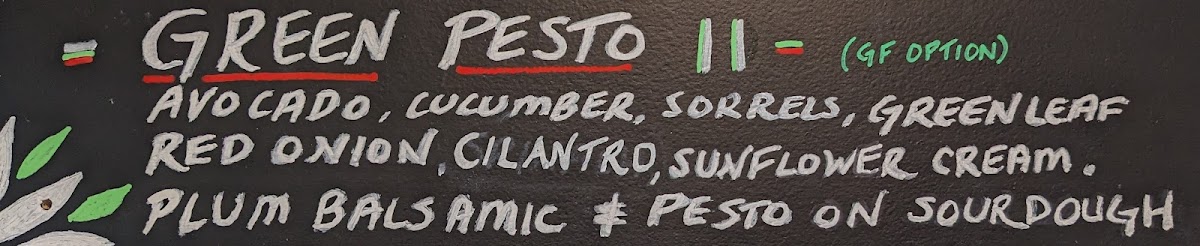 GREEN PESTO 11 (GF OPTION)
AVOCADO, CUCUMBER, SORRELS, GREEN LEAF
RED ONION, CILANTRO, SUNFLOWER CREAM.
PLUM BALSAMIC & PESTO ON SOURDOUGH